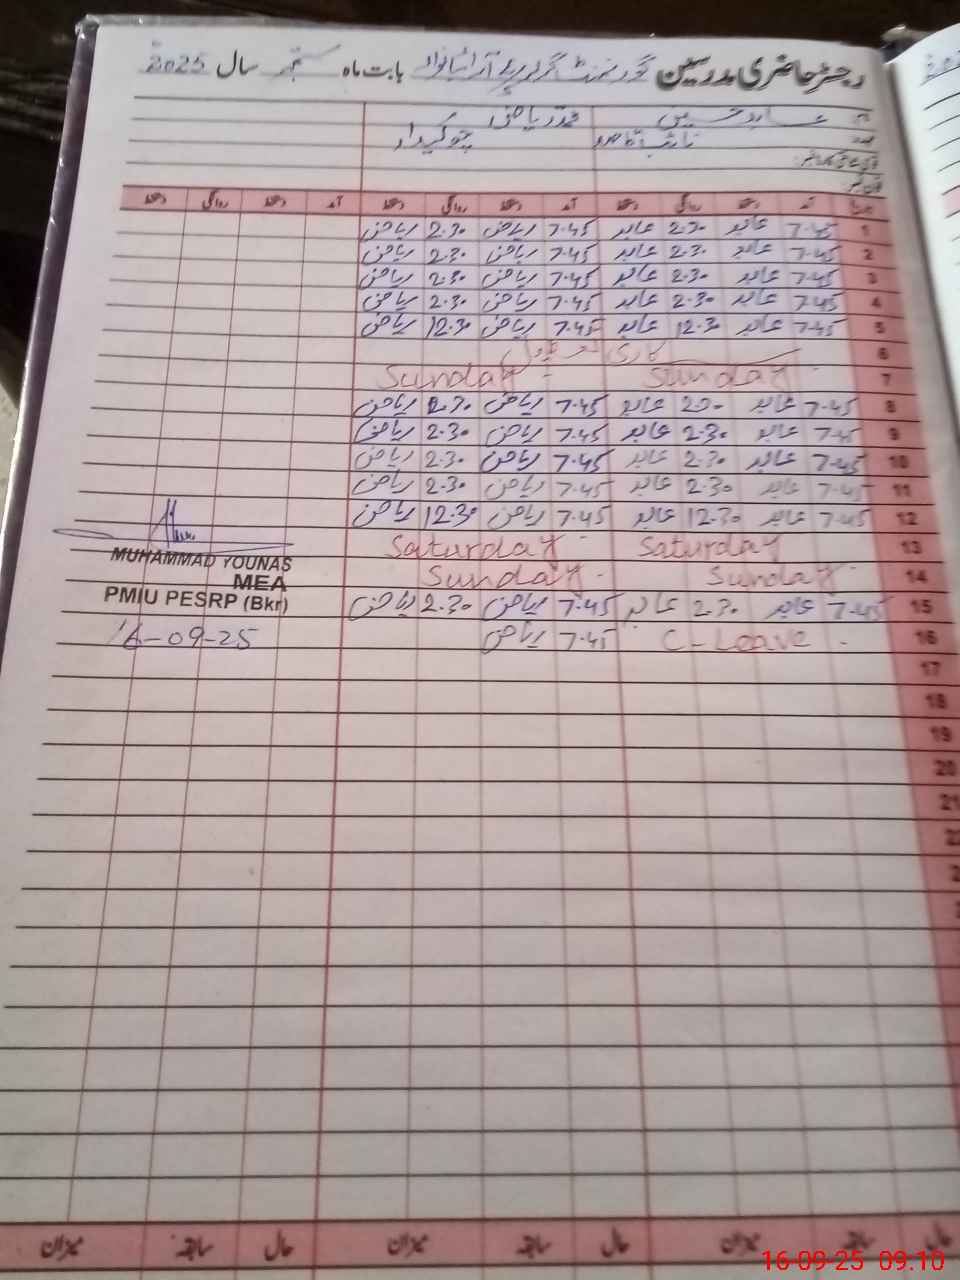 رجسٹر حاضری مدرسین گورنمنٹ گرلز بابت ماہ ستمبر سال 2025
نام عابد حسین محمد ریاض
عہدہ نائب قاصد چوکیدار
تاریخ آمد دستخط روانگی دستخط آمد دستخط روانگی دستخط آمد دستخط روانگی دستخط
1 7.45 عابد 2.30 عابد 7.45 ریاض 2.30 ریاض
2 7.45 عابد 2.30 عابد 7.45 ریاض 2.30 ریاض
3 7.45 عابد 2.30 عابد 7.45 ریاض 2.30 ریاض
4 7.45 عابد 2.30 عابد 7.45 ریاض 2.30 ریاض
5 7.45 عابد 12.30 عابد 7.45 ریاض 12.30 ریاض
6
7 Sunday Sunday
8 7.45 عابد 2.30 عابد 7.45 ریاض 2.30 ریاض
9 7.45 عابد 2.30 عابد 7.45 ریاض 2.30 ریاض
10 7.45 عابد 2.30 عابد 7.45 ریاض 2.30 ریاض
11 7.45 عابد 2.30 عابد 7.45 ریاض 2.30 ریاض
12 7.45 عابد 12.30 عابد 7.45 ریاض 12.30 ریاض
13 Saturday Saturday
14 Sunday Sunday
15 7.45 عابد 2.30 عابد 7.45 ریاض 2.30 ریاض
16 C-Leave 7.45 ریاض
MUHAMMAD YOUNAS
MEA
PMIU PESRP (Bkr)
16-09-25
17
18
19
20
21
میزان سابقہ حال میزان سابقہ حال میزان سابقہ حال
16-09-25 09:10